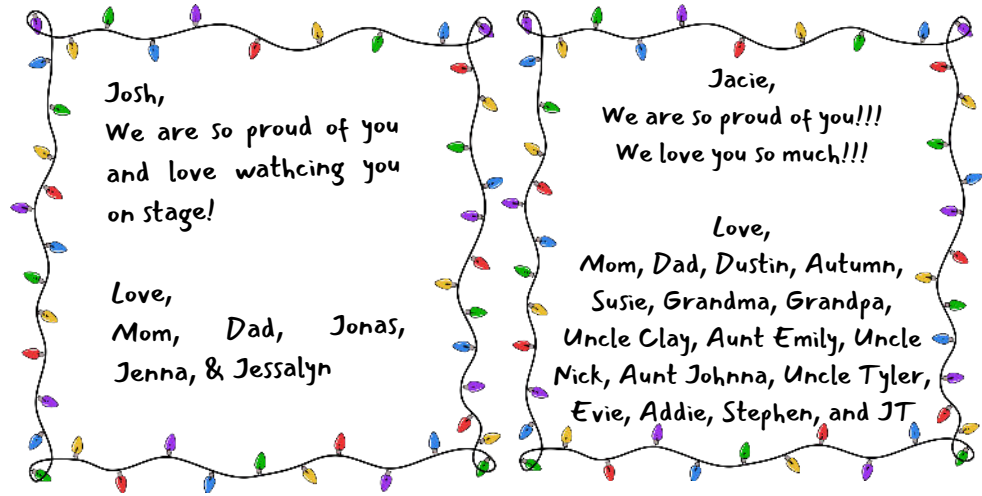 Josh,
We are so proud of you
and love wathcing you
on stage!
Love,
Mom, Dad, Jonas,
Jenna, & Jessalyn
Jacie,
We are so proud of you!!!
We love you so much!!!
Love,
Mom, Dad, Dustin, Autumn,
Susie, Grandma, Grandpa,
Uncle Clay, Aunt Emily, Uncle
Nick, Aunt Johnna, Uncle Tyler,
Evie, Addie, Stephen, and JT